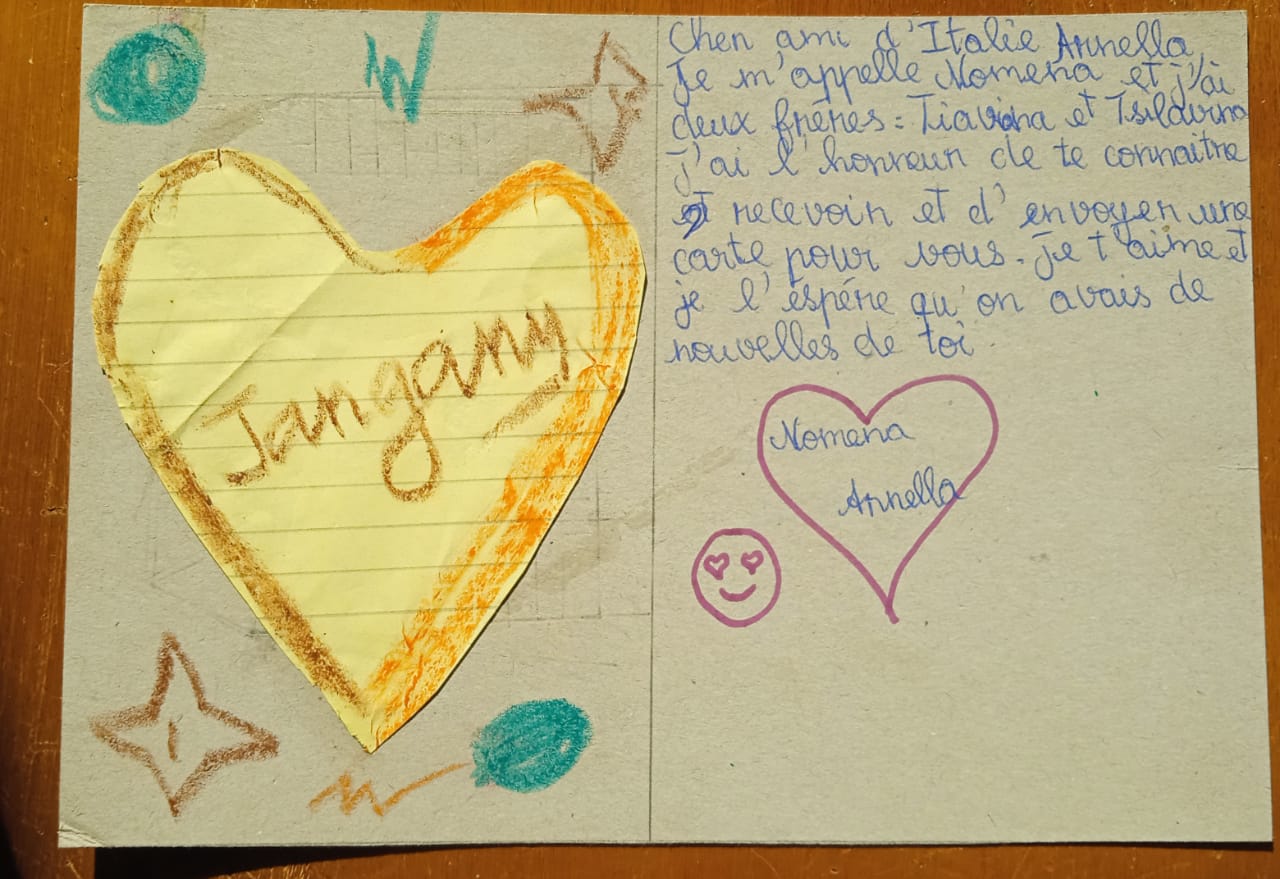 Jangany
Cher ami d'Italie Annella
Je m'appelle Nomena et j'ai
deux frères : Tiavina et Tsilavina
j'ai l'honneur de te connaitre
et recevoir et d'envoyer une
carte pour vous. Je t'aime et
je l'éspére qu'on avais de
nouvelles de toi
Nomena
Annella